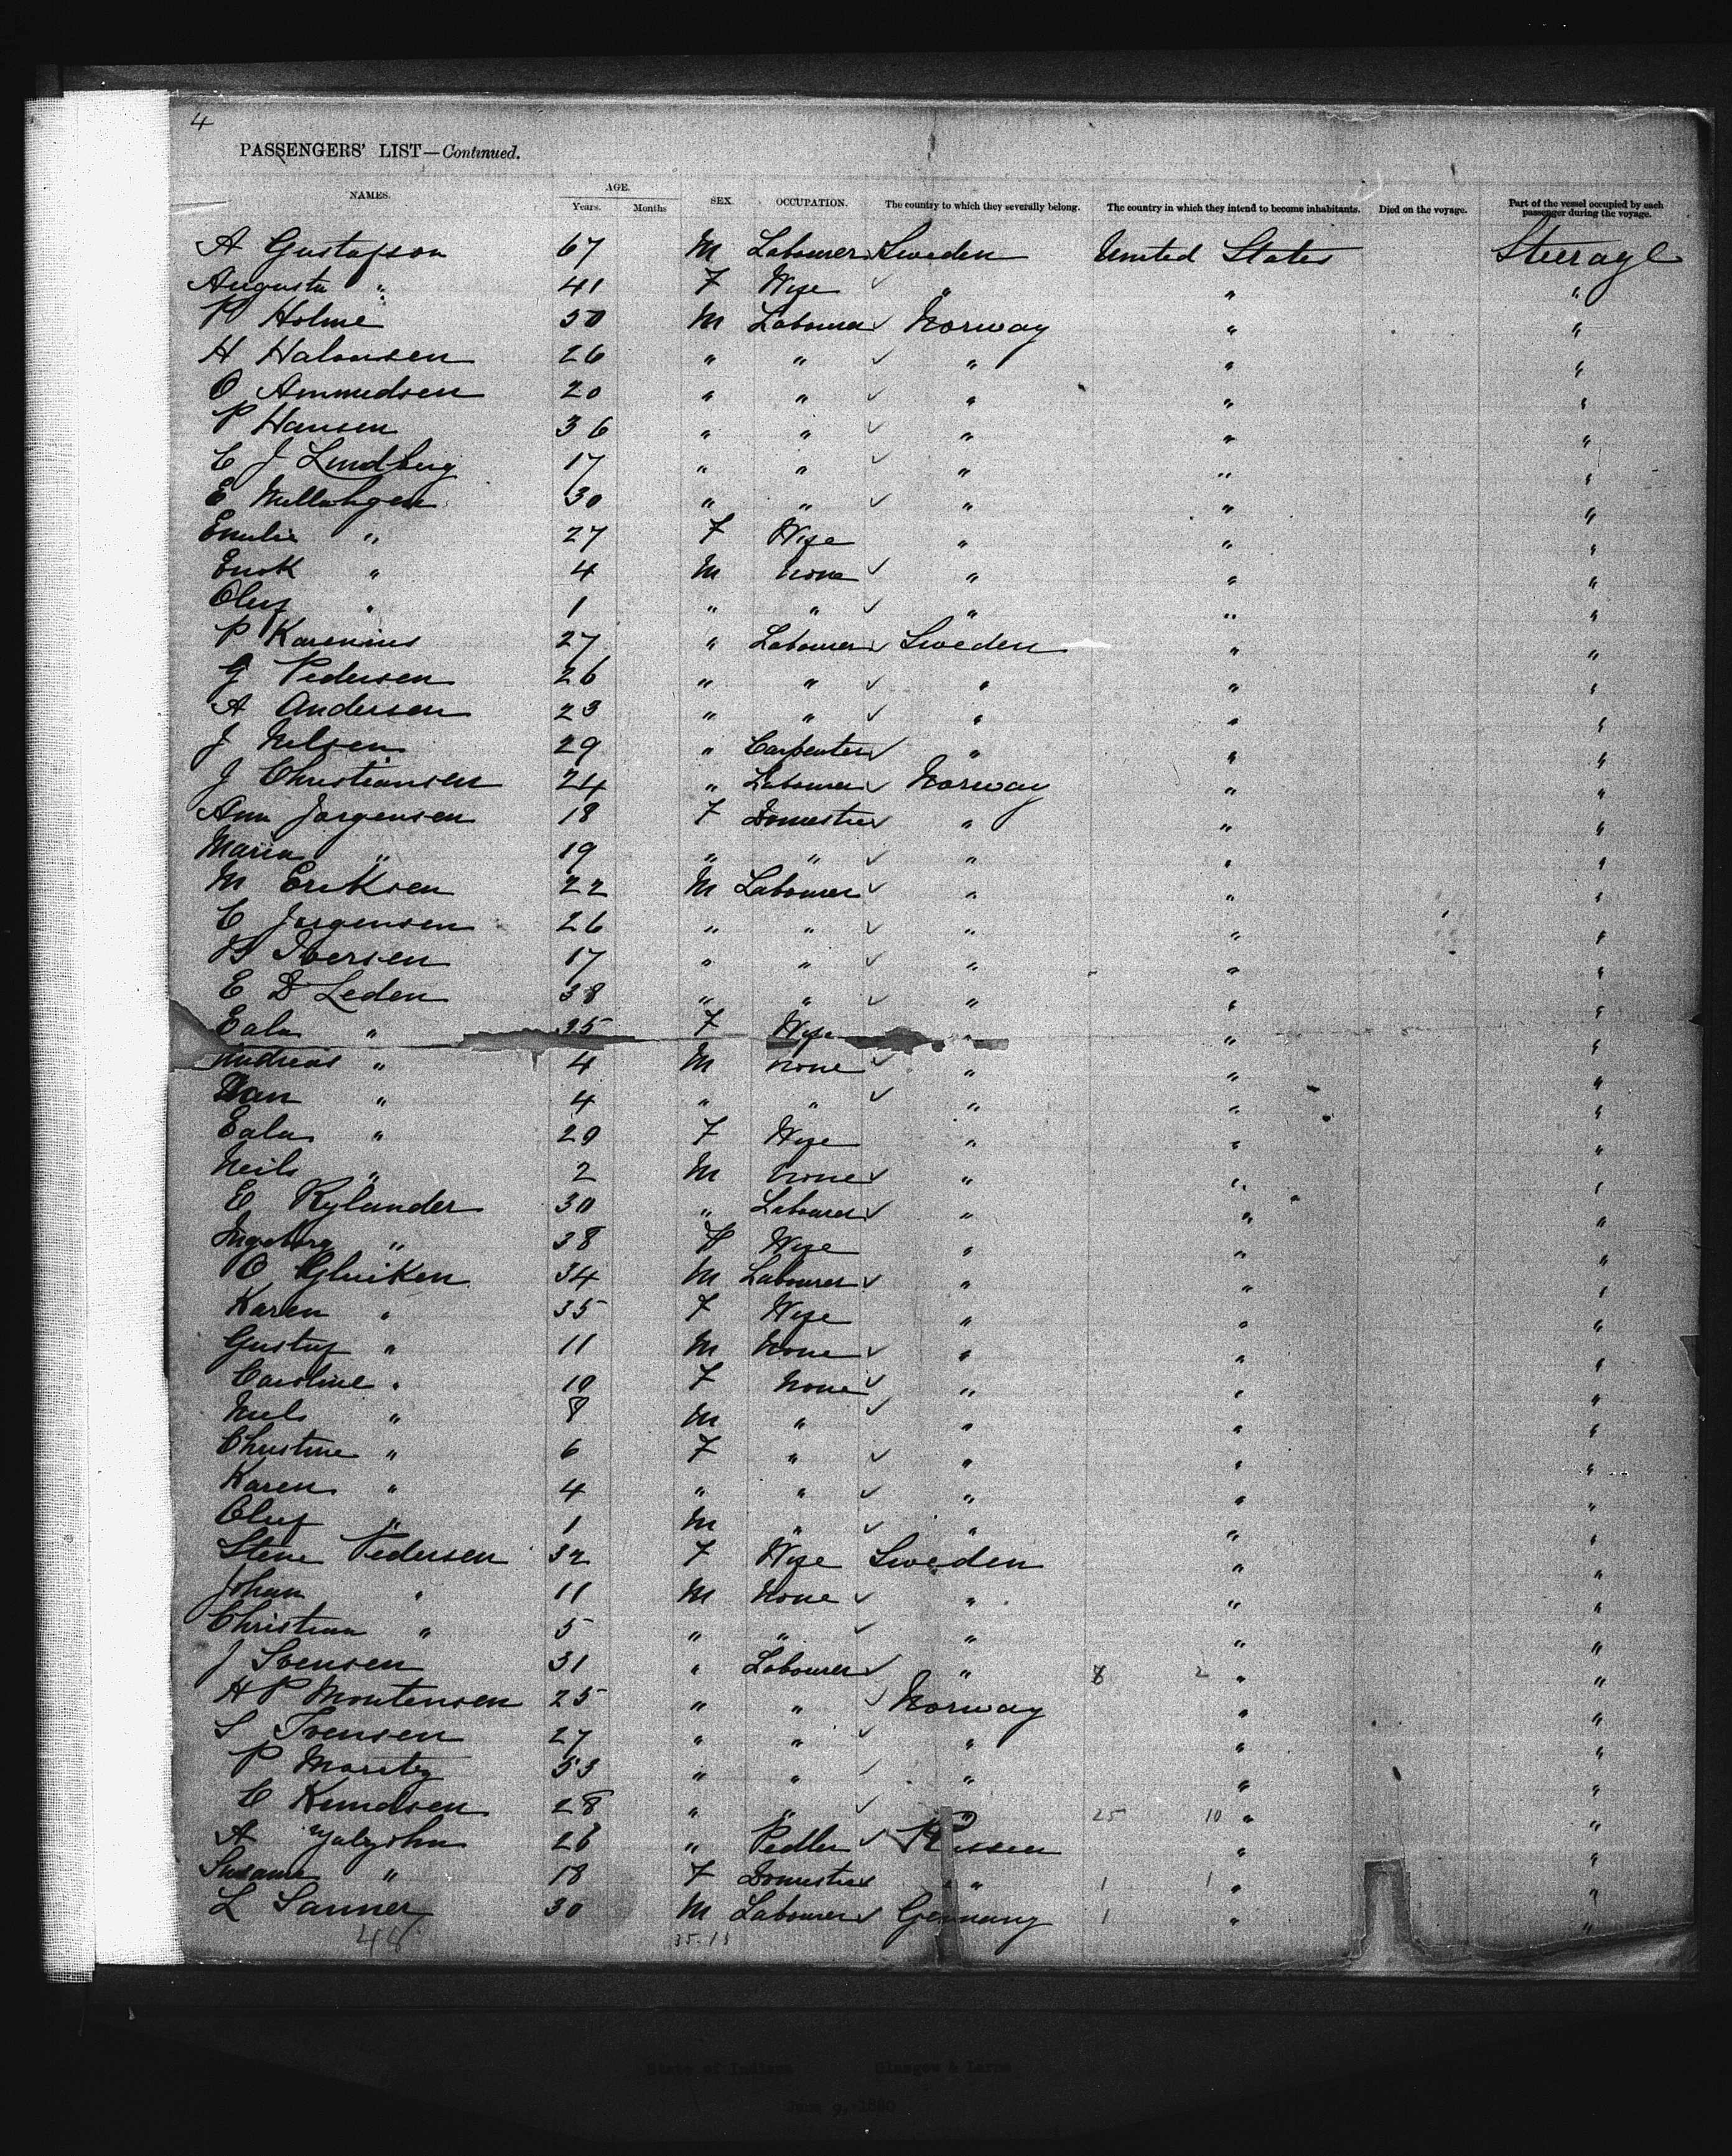 4
PASSENGERS' LIST—Continued.
NAMES. AGE. Years. Months SEX. OCCUPATION. The country to which they severally belong. The country in which they intend to become inhabitants. Died on the voyage. Part of the vessel occupied by each passenger during the voyage.
A Gustafson 67 M Labourer Sweden United States Steerage
Augusta " 41 F Wife ✓ " " "
P Holme 50 M Labourer ✓ Norway " "
H Halvorsen 26 " " ✓ " " "
O Ammudsen 20 " " ✓ " " "
P Hansen 36 " " ✓ " " "
C J Lindberg 17 " " ✓ " " "
E 30 " " ✓ " " "
Emilie " 27 F Wife " " "
Enok " 4 M None ✓ " " "
Oluf " 1 " " ✓ " " "
P Karenius 27 " Labourer ✓ Sweden " "
G Pedersen 26 " " ✓ " " "
A Andersen 23 " " ✓ " " "
J Nelsen 29 " Carpenter ✓ " " "
J Christiansen 24 " Labourer ✓ Norway " "
Ann Jorgensen 18 F Domestic ✓ " " "
Maria " 19 " " ✓ " " "
M Eriksen 22 M Labourer ✓ " " "
C Jorgensen 26 " " ✓ " " "
B Iversen 17 " " ✓ " " "
E D Leden 38 " " ✓ " " "
Eala " 35 F Wife " " "
Andreas " 4 M None ✓ " " "
Dan " 4 " " ✓ " " "
Eala " 29 F Wife " " "
Neils " 2 M None ✓ " " "
E Rylander 30 " Labourer ✓ " " "
Ingeborg " 38 F Wife " " "
O Gluiken 34 M Labourer ✓ " " "
Karen " 35 F Wife " " "
Gustaf " 11 M None ✓ " " "
Caroline " 10 F None ✓ " " "
Niels " 8 M " ✓ " " "
Christine " 6 F " ✓ " " "
Karen " 4 " " ✓ " " "
Oluf " 1 M " ✓ " " "
Stine Pedersen 32 F Wife Sweden " "
Johan " 11 M None ✓ " " "
Christian " 5 " " ✓ " " "
J Svensen 31 " Labourer ✓ " 8 2 " "
H P Mortensen 25 " " ✓ Norway " "
S Ivensen 27 " " ✓ " " "
P Moritz 53 " " ✓ " " "
C Knudsen 28 " " ✓ " 25 10 " "
A 26 " Pedler ✓ Russia " "
Susanne " 18 F Domestic " 1 1 " "
L Sanner 30 M Labourer ✓ Germany 1 " "
48 35.13
State of Indiana Glasgow & Larne
June 9, 1880